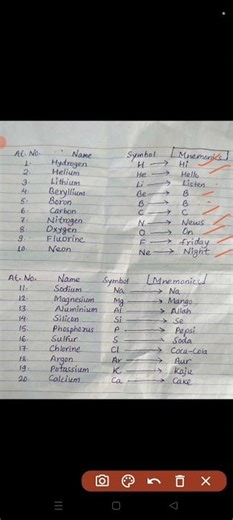 At. No. Name Symbol Mnemonics
1. Hydrogen H → Hi
2. Helium He → Hello
3. Lithium Li → Listen
4. Beryllium Be → B
5. Boron B → B
6. Carbon C → C
7. Nitrogen N → News
8. Oxygen O → On
9. Fluorine F → Friday
10. Neon Ne → Night
At. No. Name Symbol Mnemonics
11. Sodium Na → Na
12. Magnesium Mg → Mango
13 Aluminium Al → Allah
14 Silicon Si → Se
15. Phosphorus P → Pepsi
16. Sulfur S → Soda
17. Chlorine Cl → Coca-Cola
18. Argon Ar → Aur
19. Potassium K → Kaju
20 Calcium Ca → Cake